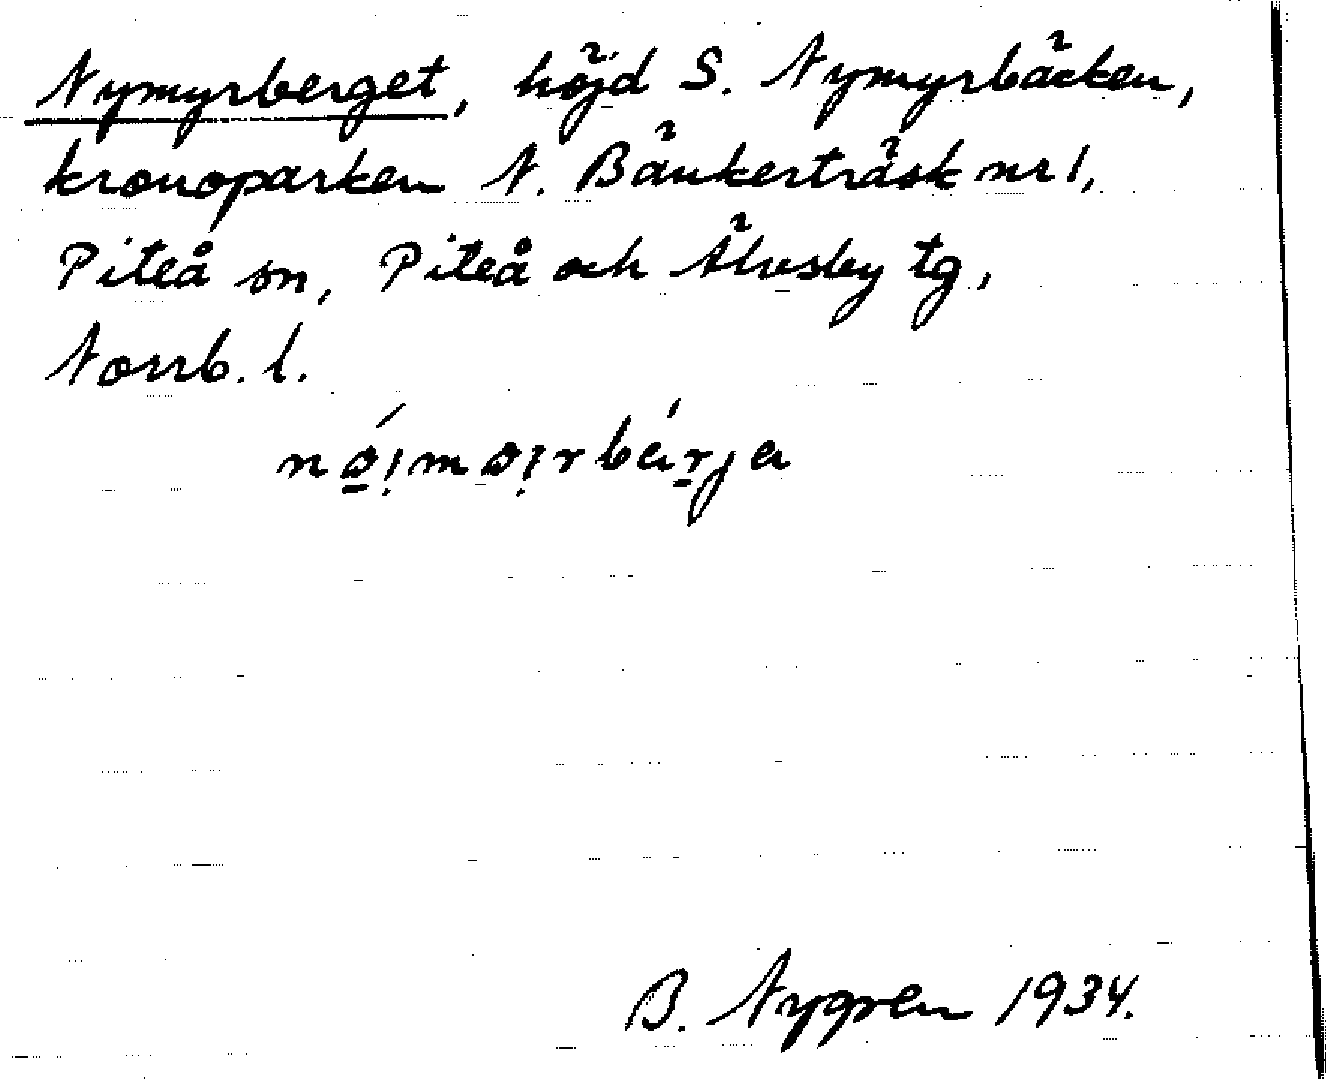 Nymyrberget, höjd S. Nymyrbäcken,
kronoparken N. Bänkerträsk nr 1,
Piteå sn, Piteå och Älvsby tg,
Norrb. l.
B. Nygren 1934.